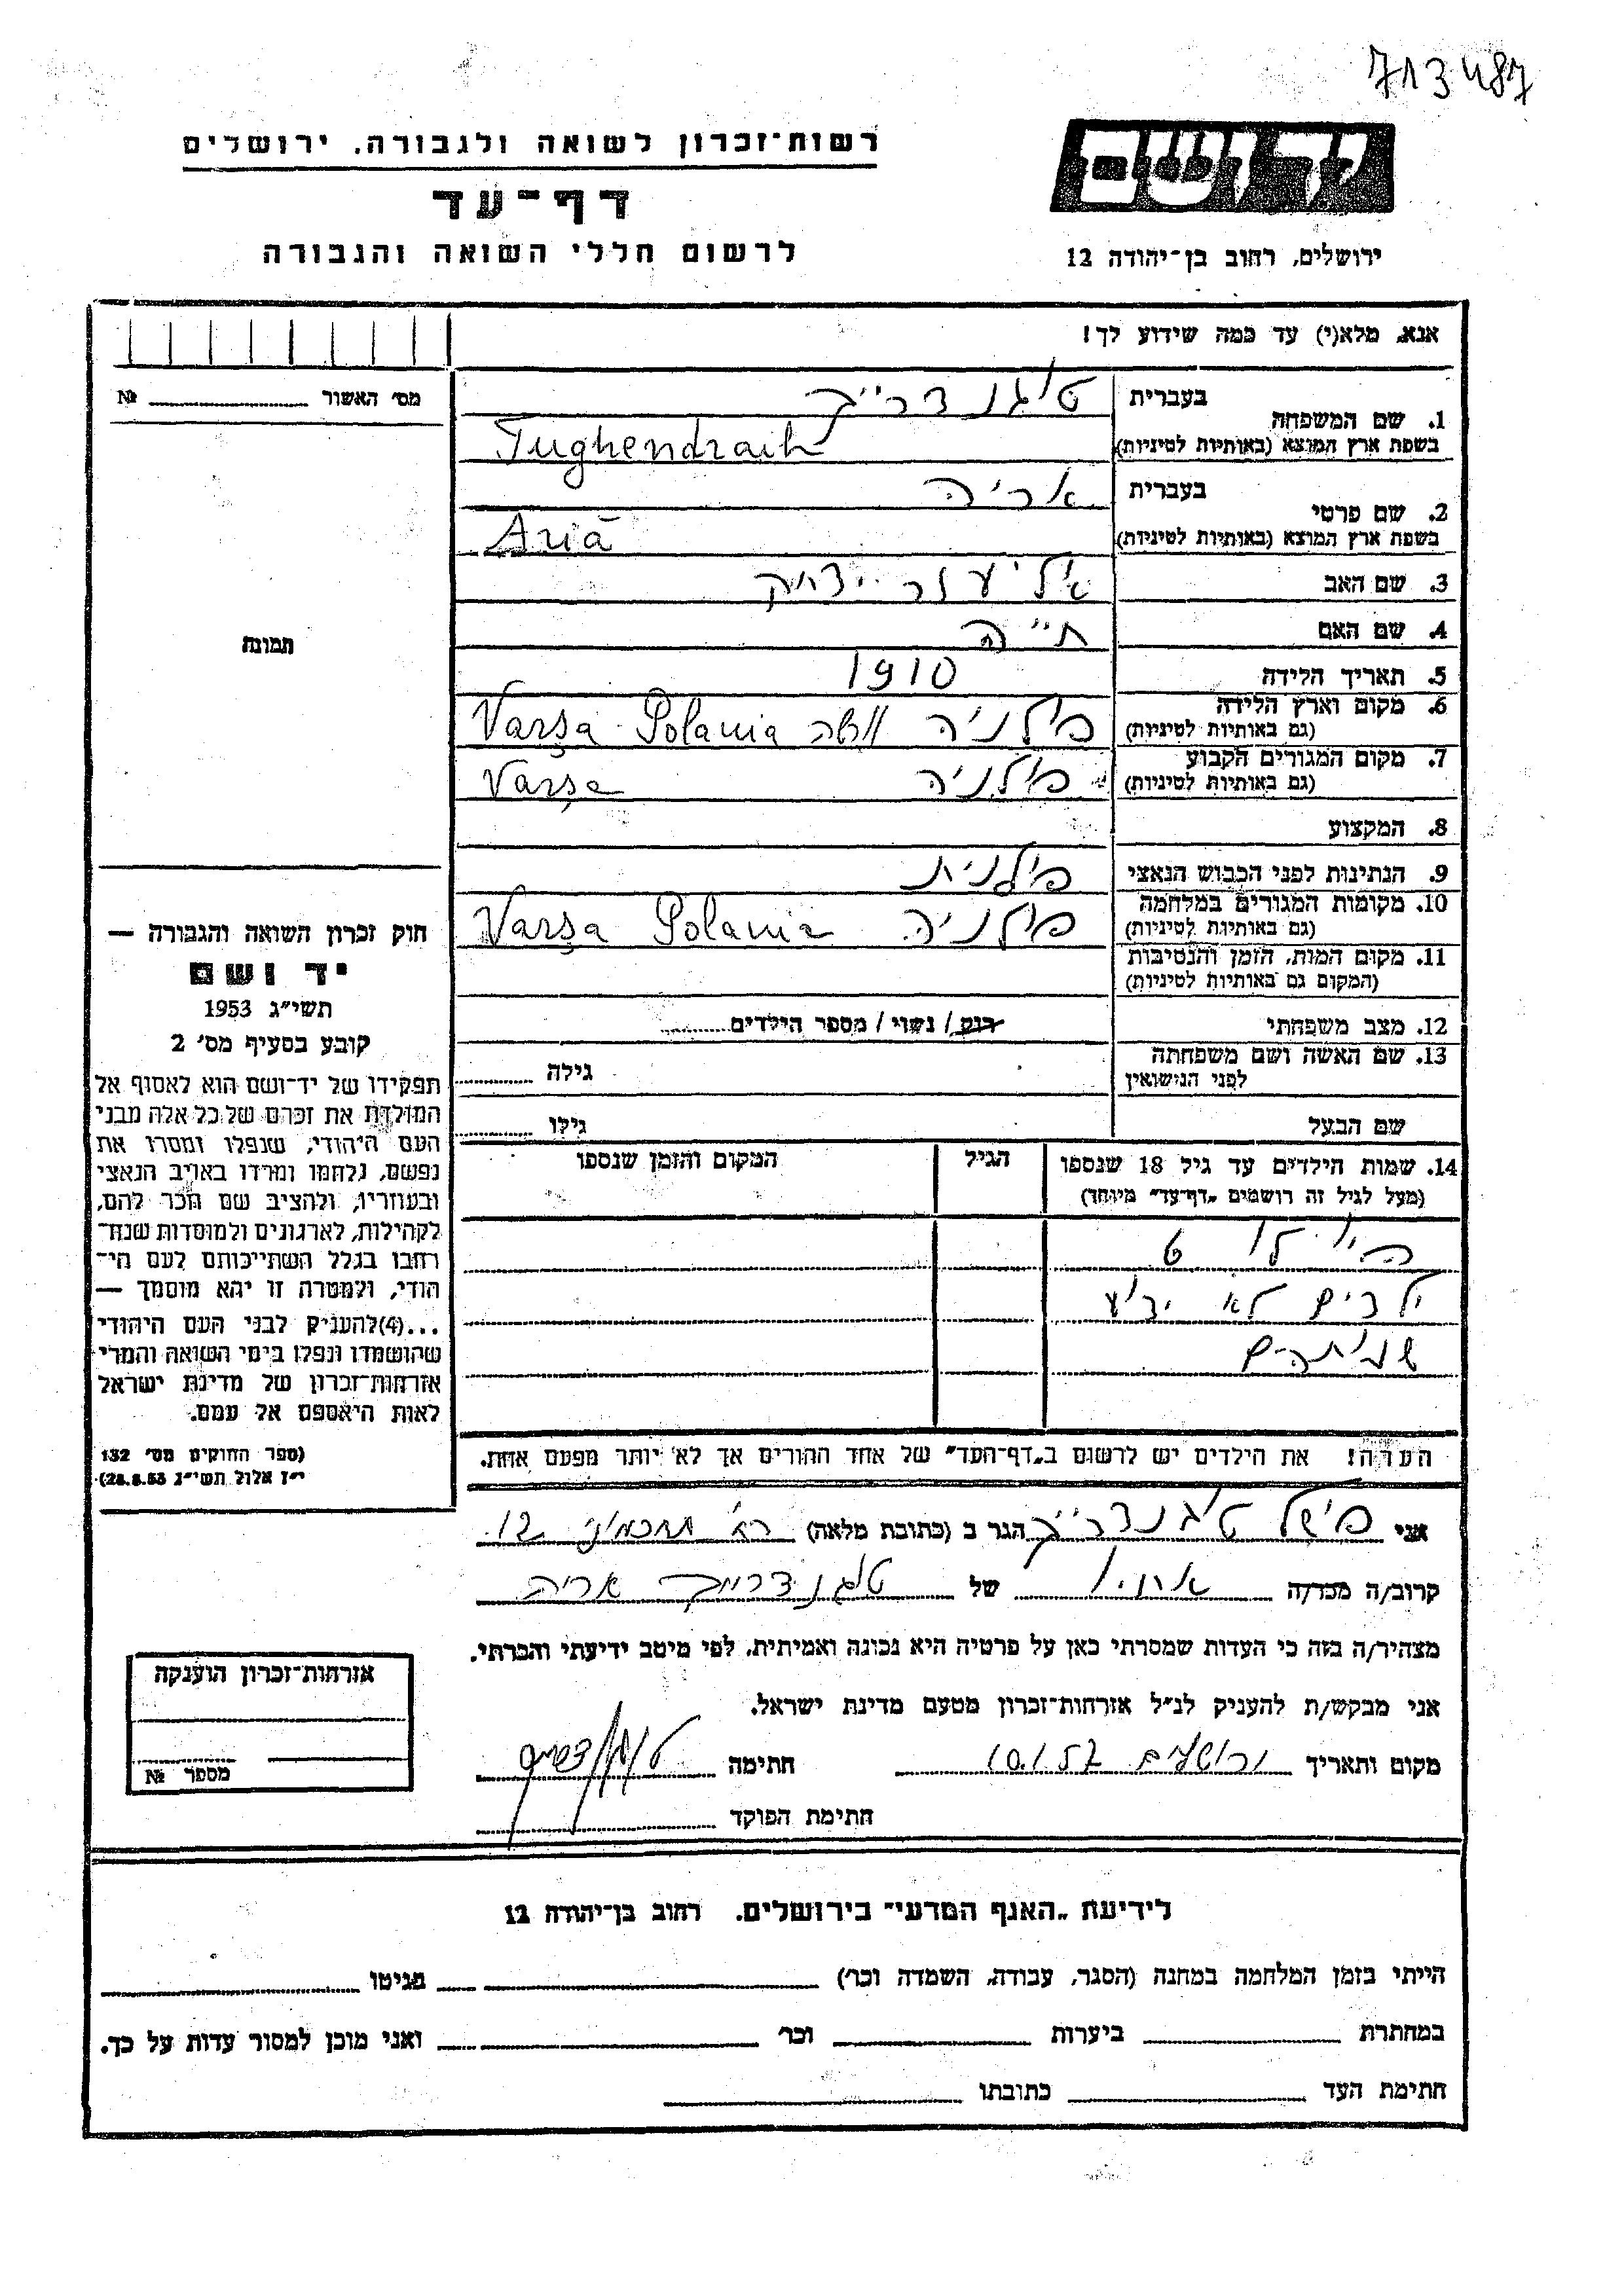 713487
יד ושם
ירושלים, רחוב בן־יהודה 12
רשות־זכרון לשואה ולגבורה, ירושלים
דף־עד
לרשום חללי השואה והגבורה
אנא, מלא(י) עד כמה שידוע לך!
1. שם המשפחה
בעברית
בשפת ארץ המוצא (באותיות לטיניות)
Tughendraih
2. שם פרטי
בעברית אריה
בשפת ארץ המוצא (באותיות לטיניות)
Ariă
3. שם האב אליעזר
4. שם האם חייה
5. תאריך הלידה 1910
6. מקום וארץ הלידה
(גם באותיות לטיניות)
פולניה Varşa Polania
7. מקום המגורים הקבוע
(גם באותיות לטיניות)
פולניה Varşa
8. המקצוע
9. הנתינות לפני הכבוש הנאצי פולנית
10. מקומות המגורים במלחמה
(גם באותיות לטיניות)
פולניה Varşa Polania
11. מקום המות, הזמן והנסיבות
(המקום גם באותיות לטיניות)
12. מצב משפחתי
רוק / נשוי / מספר הילדים
13. שם האשה ושם משפחתה
לפני הנישואין
גילה
שם הבעל
גילו
14. שמות הילדים עד גיל 18 שנספו
(מעל לגיל זה רושמים „דף־עד" מיוחד)
הגיל
המקום והזמן שנספו
היו לו
ילדים לא ידוע
שמותהם
הערה! את הילדים יש לרשום ב„דף־העד" של אחד ההורים אך לא יותר מפעם אחת.
מס' האשור №
תמונה
חוק זכרון השואה והגבורה —
יד ושם
תשי"ג 1953
קובע בסעיף מס' 2
תפקידו של יד־ושם הוא לאסוף אל
המולדת את זכרם של כל אלה מבני
העם היהודי, שנפלו ומסרו את
נפשם, נלחמו ומרדו באויב הנאצי
ובעוזריו, ולהציב שם וזכר להם,
לקהילות, לארגונים ולמוסדות שנח־
רחבו בגלל השתייכותם לעם הי־
הודי, ולמטרה זו יהא מוסמך —
...(4) להעניק לבני העם היהודי
שהושמדו ונפלו בימי השואה והמרי
אזרחות־זכרון של מדינת ישראל
לאות היאספם אל עמם.
(ספר החוקים מס' 132
י"ז אלול תשי"ג 28.8.53)
אני הגר ב (כתובת מלאה) תחכמוני 12
קרוב/ה מכר/ה של אריה
מצהיר/ה בזה כי העדות שמסרתי כאן על פרטיה היא נכונה ואמיתית, לפי מיטב ידיעתי והכרתי.
אני מבקש/ת להעניק לנ"ל אזרחות־זכרון מטעם מדינת ישראל.
מקום ותאריך ירושלים חתימה
חתימת הפוקד
אזרחות־זכרון הוענקה
מספר №
לידיעת „האגף המדעי" בירושלים, רחוב בן־יהודה 12
הייתי בזמן המלחמה במחנה (הסגר, עבודה, השמדה וכר') בגיטו
במחתרת ביערות וכר' ואני מוכן למסור עדות על כך.
חתימת העד כתובתו